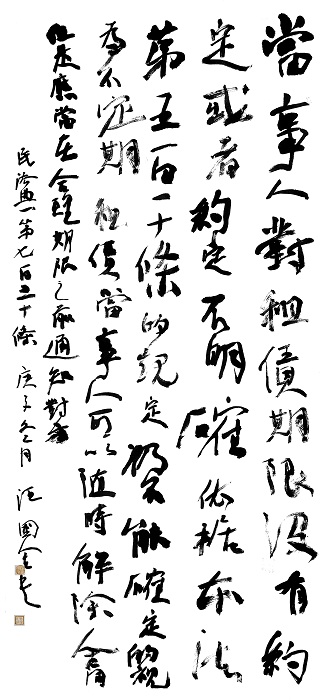 當事人對租賃期限没有約
定或者約定不明確依據本法
第五百一十條的規定仍不能確定的視
為不定期租賃當事人可以隨時解除合同
但是應當在合理期限之前通知對方
民法典第七百三十條 庚子冬月 汪國金書